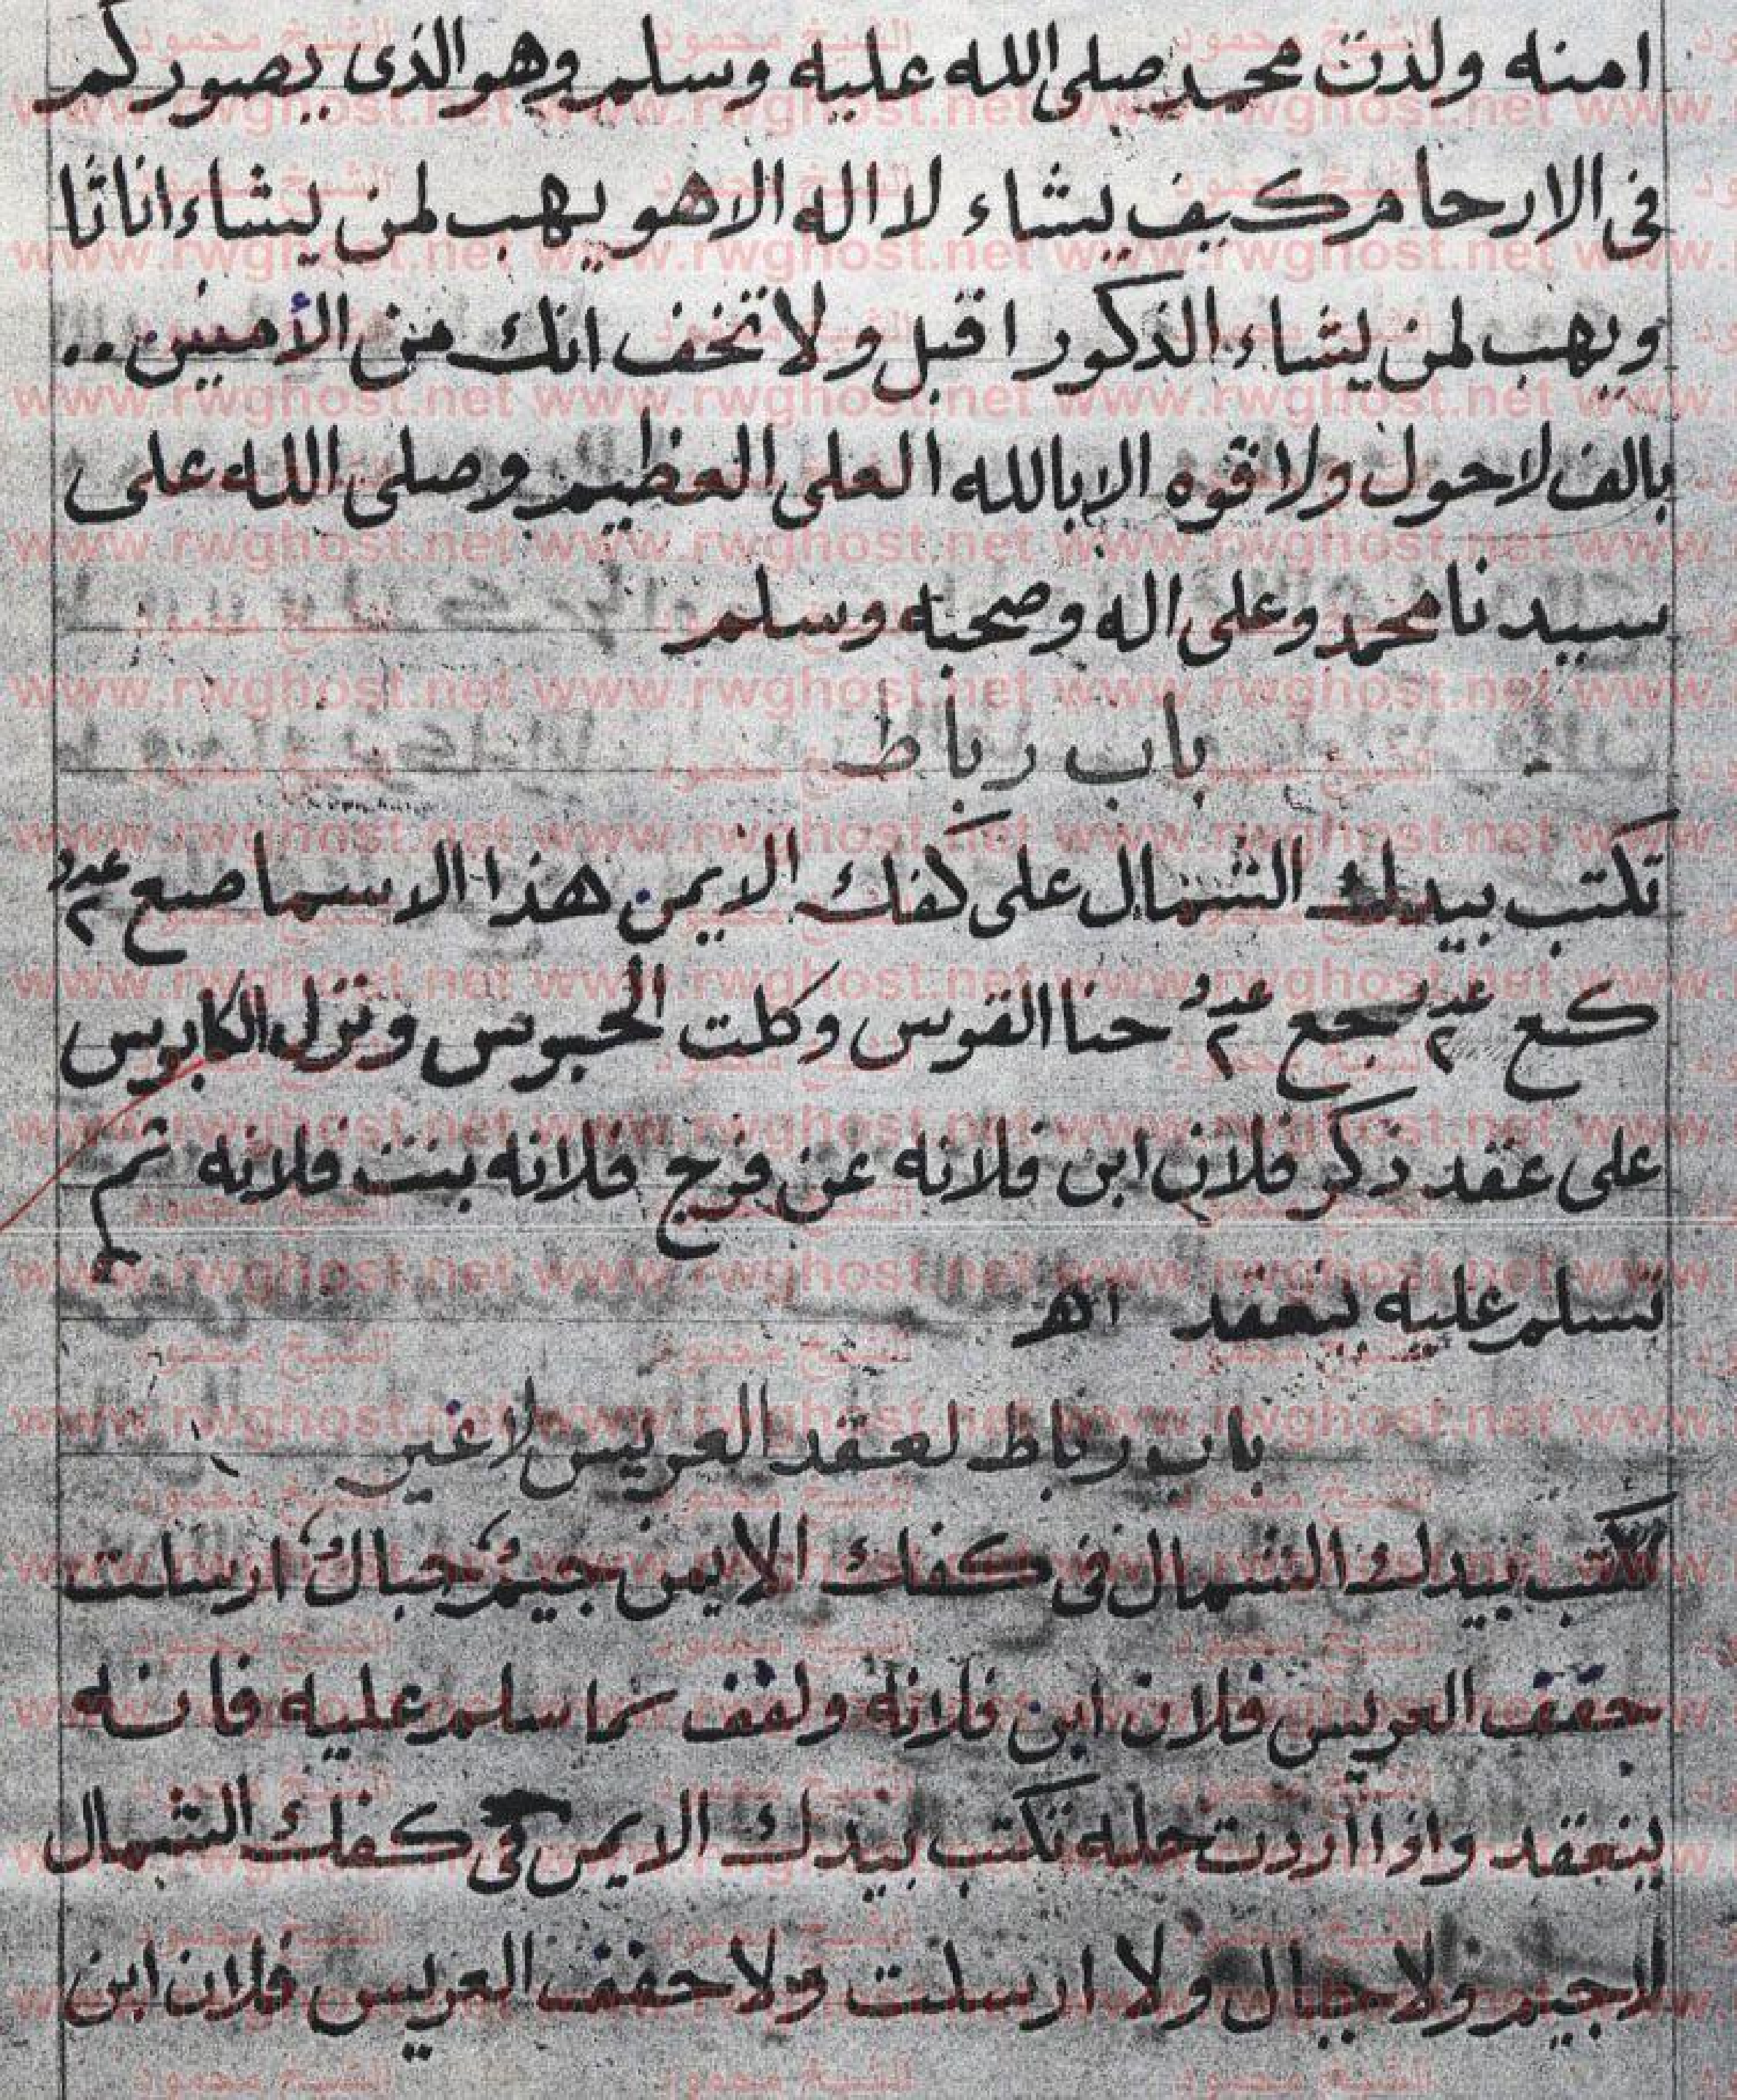 امنه ولدت محمد صلى الله عليه وسلم وهو الذى يصوركم
فى الارحام كيف يشاء لا اله الا هو يهب لمن يشاء اناثا
ويهب لمن يشاء الذكور اقبل ولا تخف انك من الأمنين ..
بالف لا حول ولا قوه الا بالله العلى العظيم وصلى الله على
سيدنا محمد وعلى اله وصحبه وسلم
باب رباط
تكتب بيدك الشمال على كفك الايمن هذا الاسما صع عدد ٢
كع عدد ٢ جع عدد ٢ حنا القوس وكلت الحبوس ونزل الكابوس
على عقد ذكر فلان ابن فلانه عن فرج فلانه بنت فلانه ثم
تسلم عليه ينعقد اهـ
باب رباط لعقد العريس لا غير
تكتب بيدك الشمال فى كفك الايمن جيم جبال ارسلت
حفف العريس فلان ابن فلانة ولفف سلم عليه فانه
ينعقد واذا اردت حله تكتب بيدك الايمن فى كفك الشمال
لا جيم ولا جبال ولا ارسلت ولا حفف العريس فلان ابن
www.rwghost.net
الشيخ محمود